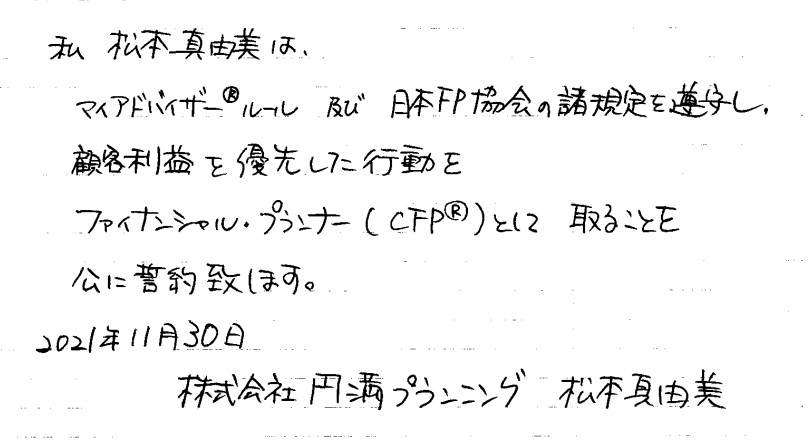 私 松本真由美は、
マイアドバイザー®ルール 及び 日本FP協会の諸規定を遵守し、
顧客利益を優先した行動を
ファイナンシャル・プランナー(CFP®)として 取ることを
公に誓約致します。
2021年11月30日
株式会社 円満プランニング 松本真由美